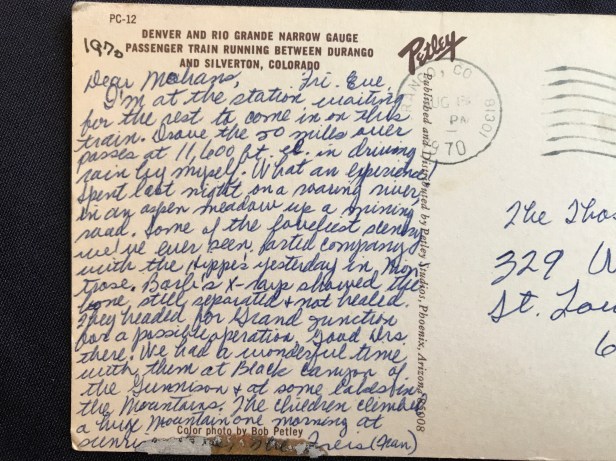 PC-12
DENVER AND RIO GRANDE NARROW GAUGE
PASSENGER TRAIN RUNNING BETWEEN DURANGO
AND SILVERTON, COLORADO
1970
Petley
Dear Mohans, Fri. Eve,
I'm at the station waiting
for the rest to come in on this
train. Drove the 50 miles over
passes at 11,600 ft. el. in driving
rain by myself. What an experience!
Spent last night on a roaring river,
in an aspen meadow up a mining
road. Some of the loveliest scenery
we've ever seen. Parted company
with the Hippe's yesterday in Mon
trose. Barb's X-rays showed the
bone still separated & not healed.
They headed for Grand Junction
for a possible operation. Good Drs.
there. We had a wonderful time
with them at Black Canyon of
the Gunnison & at some lakes in
the Mountains. The children climbed
a huge Mountain one morning at
sunri
(Fran)
Color photo by Bob Petley
Published and Distributed by Petley Studios, Phoenix, Arizona 85008
ANGO, CO
81301
AUG
PM
1970
The Thos
329 W
St. Lou
6